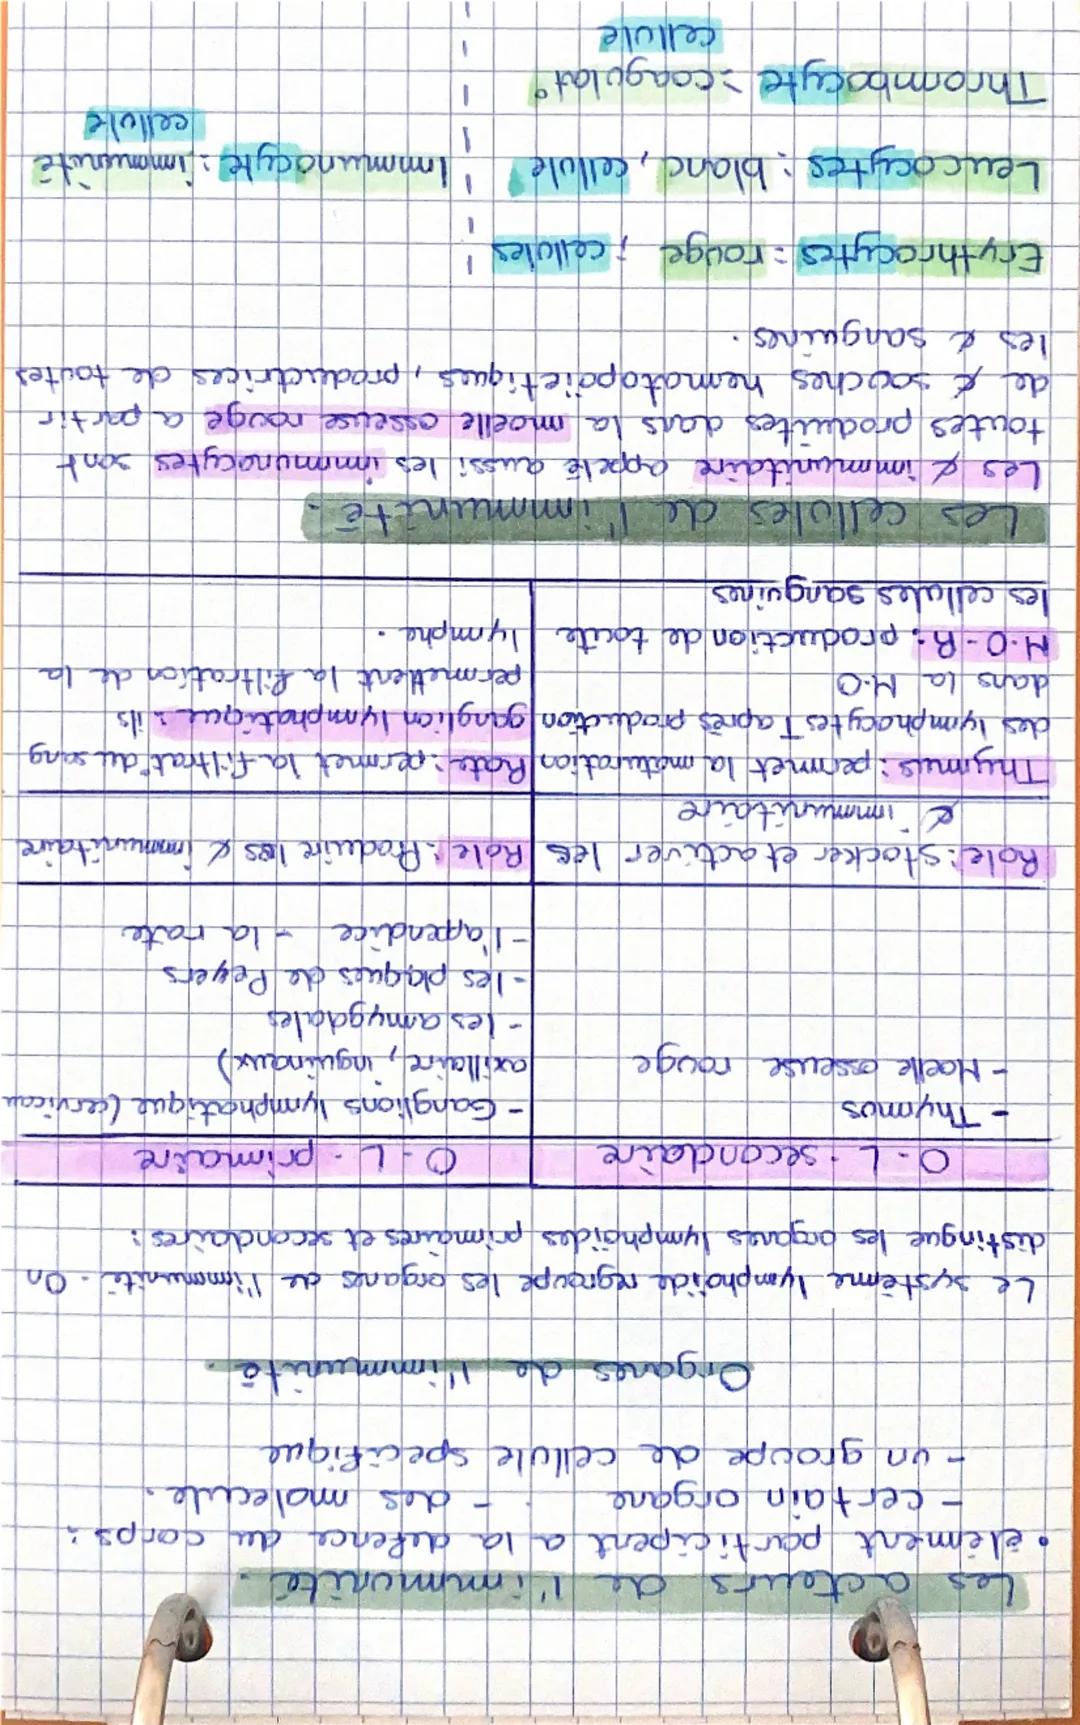 Les acteurs de l'immunité.
• élèment participent a la defence du corps :
- certain organe - des molecule.
- un groupe de cellule specifique
Organes de l'immunité.
Le système lymphoïde regroupe les organes de l'immunité. On
distingue les organes lymphoïdes primaires et secondaires :
O-L. secondaire
- Thymus
- Moelle osseuse rouge
Role : stocker et activer les
¢ immunitaire
Thymus : permet la maturation
des lymphocytes T après production
dans la M.O
M.O-R : production de toute
les cellules sanguines
O-L. primaire
- Ganglions lymphatique (cervicau
axillaire, inguinaux)
- les amygdales
- les plaques de Peyers
- l'appendice - la rate
Role : Produire les ¢ immunitaire
Rate : permet la filtrat° du sang
ganglion lymphatique : ils
permettent la filtration de la
lymphe.
Les cellules de l'immunité.
Les ¢ immunitaire appelé aussi les immunocytes sont
toutes produites dans la moelle osseuse rouge a partir
de ¢ souches hematopoïetiques, productrices de toutes
les ¢ sanguines.
Erythrocytes : rouge ; cellules
Leucocytes : blanc, cellule
Immunocyte : immunité
cellule
Thrombocyte : coagulat°
cellule